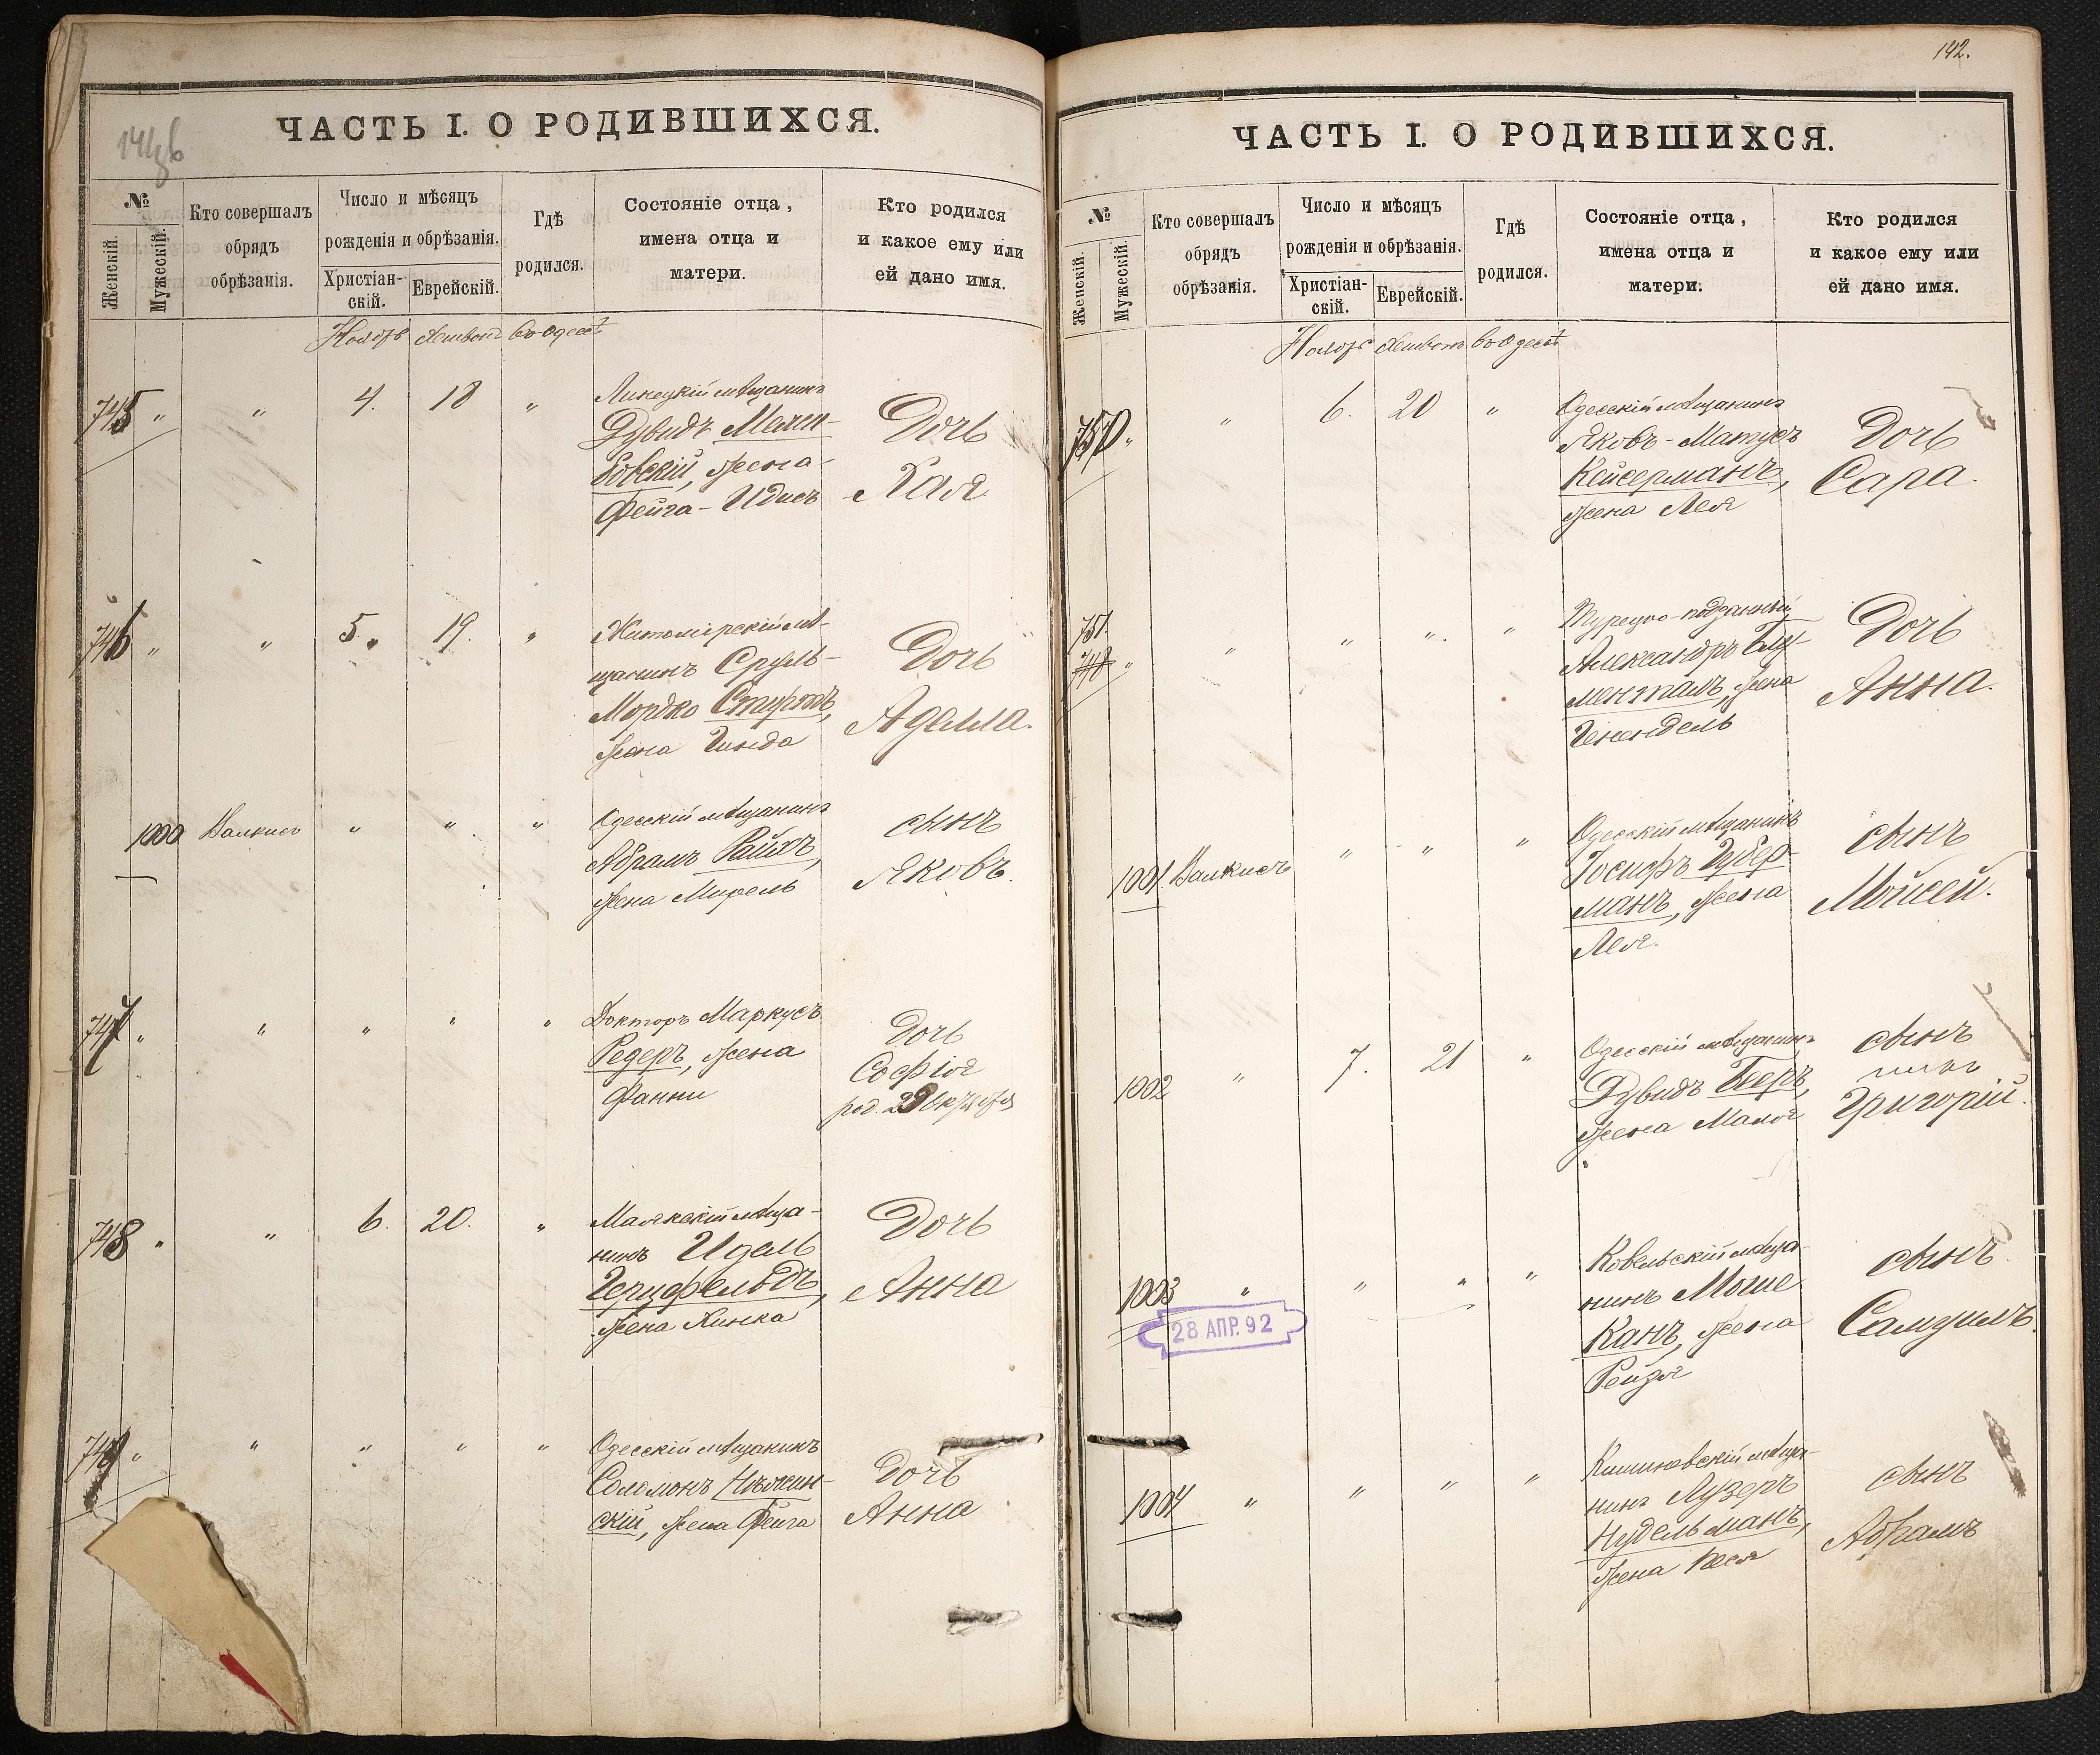 141об
ЧАСТЬ I. О РОДИВШИХСЯ.
№
Женскій.
Мужескій.
Кто совершалъ
обрядъ
обрѣзанія.
Число и мѣсяцъ
рожденія и обрѣзанія.
Христіан-
скій.
Еврейскій.
Гдѣ
родился.
Состояніе отца,
имена отца и
матери.
Кто родился
и какое ему или
ей дано имя.
Ноябрь Хешвонъ въ Одессѣ
745 " " 4. 18 "
Липецкій мѣщанинъ
Дувидъ
жена
Фейга-Идисъ
Дочь
Хая
746 " " 5 " 19. "
Житомірскій мѣ-
щанинъ Сруль-
Мордко
жена Гинда
Дочь
Аделла.
1000 Валкисъ " " "
Одесскій мѣщанинъ
Абрамъ Райхъ,
жена Мирель
сынъ
Яковъ.
747 " " " " "
Докторъ Маркусъ
Редеръ, жена
Фанни
Дочь
Софія
род. 29 Октября
748 " " 6. 20. "
Маякскій мѣща-
нинъ Идель
Герцфельдъ,
жена Хинка
Дочь
Анна
749 " " " " "
Одесскій мѣщанинъ
Соломонъ Нѣжин-
скій, жена Фейга
Дочь
Анна
142.
ЧАСТЬ I. О РОДИВШИХСЯ.
№
Женскій.
Мужескій.
Кто совершалъ
обрядъ
обрѣзанія.
Число и мѣсяцъ
рожденія и обрѣзанія.
Христіан-
скій.
Еврейскій.
Гдѣ
родился.
Состояніе отца,
имена отца и
матери.
Кто родился
и какое ему или
ей дано имя.
Ноябрь Хешвонъ въ Одессѣ
750 " " 6. 20 "
Одесскій мѣщанинъ
Яковъ-Матусъ
Кейсерманъ,
жена Лея
Дочь
Сара.
751.
748 " " " " "
Турецко-подданный
Александръ Блу-
менталь, жена
Генендель
Дочь
Анна.
1001. Валкисъ " " "
Одесскій мѣщанинъ
Іосифъ Губер-
манъ, жена
Лея.
сынъ
Мойсей.
1002 " 7. 21 "
Одесскій мѣщанинъ
Дувидъ Беръ,
жена Малия
сынъ
Григорій.
1003 " " " "
28 АПР. 92
Ковельскій мѣща-
нинъ Моше
Канъ, жена
Рейзя
сынъ
Самуилъ.
1004 " " " "
Кишиневскій мѣща-
нинъ Лузеръ
Нудельманъ,
жена Песя
сынъ
Абрамъ